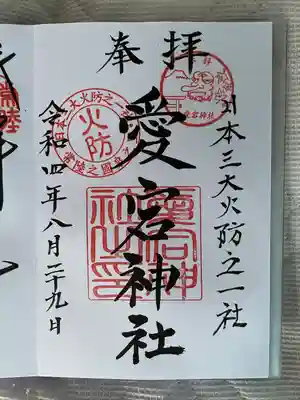 奉拝
日本三大火防之一社
愛宕神社
令和四年八月二十九日
日本三大火防之一
火防
常陸之國
愛宕神社